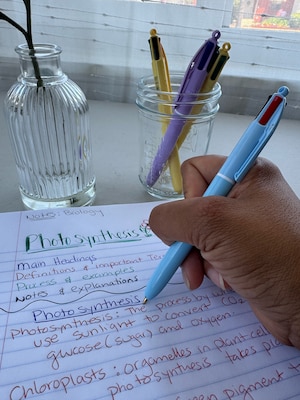 Notes: Biology
Photosynthesis
Main Headings
Definitions & Important Ter
Process & examples
Notes & explanations
Photosynthesis
Photosynthesis: The process by w
use sunlight to convert CO
glucose (sugar) and oxygen.
Chloroplasts: Organelles in plant cel
photosynthesis takes pla
een pigment t